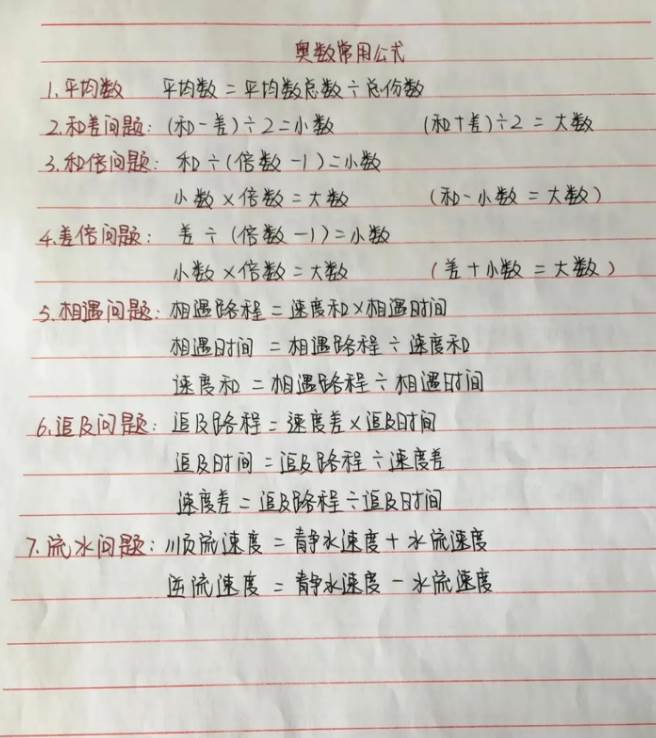 奥数常用公式
1.平均数 平均数=平均数总数÷总份数
2.和差问题:(和-差)÷2=小数 (和+差)÷2=大数
3.和倍问题: 和÷(倍数-1)=小数
小数×倍数=大数 (和-小数=大数)
4.差倍问题: 差÷(倍数-1)=小数
小数×倍数=大数 (差+小数=大数)
5.相遇问题:相遇路程=速度和×相遇时间
相遇时间=相遇路程÷速度和
速度和=相遇路程÷相遇时间
6.追及问题:追及路程=速度差×追及时间
追及时间=追及路程÷速度差
速度差=追及路程÷追及时间
7.流水问题:顺流速度=静水速度+水流速度
逆流速度=静水速度-水流速度